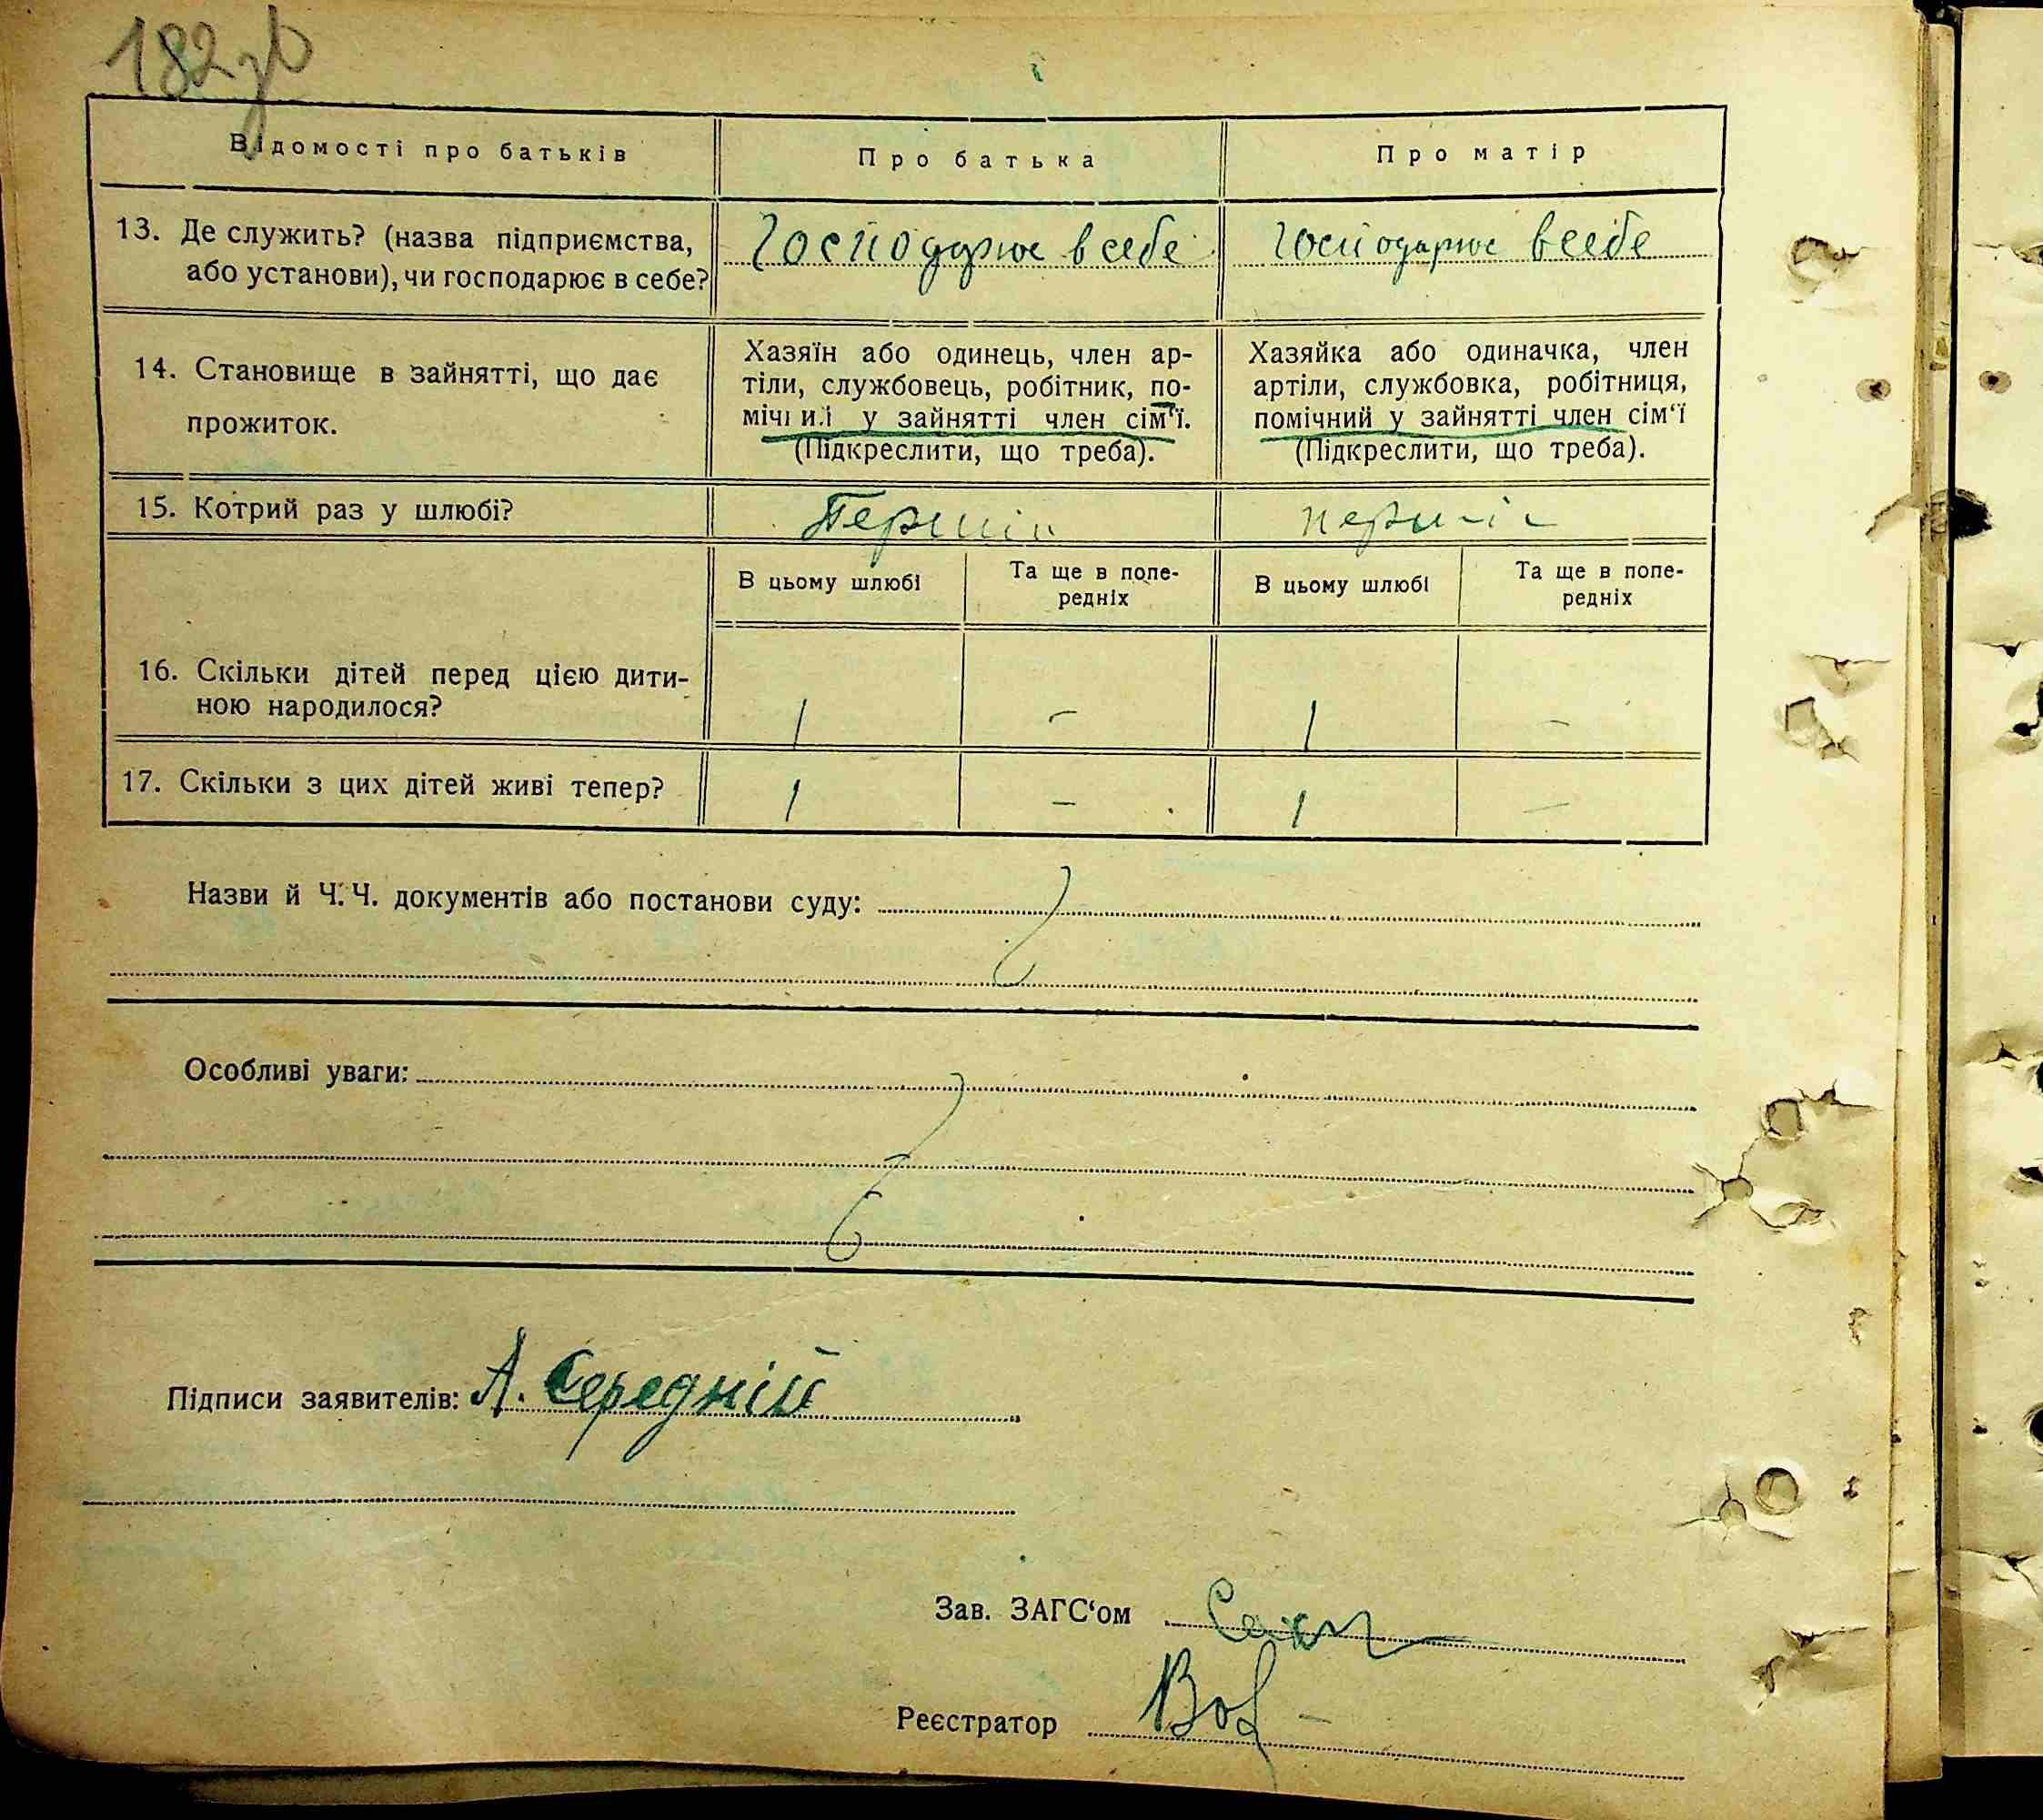 182 зв
Відомості про батьків
Про батька
Про матір
13. Де служить? (назва підприємства,
або установи), чи господарює в себе?
Господарює в себе
господарює в себе
14. Становище в зайнятті, що дає
прожиток.
Хазяїн або одинець, член ар-
тіли, службовець, робітник, по-
мічний у зайнятті член сім'ї.
(Підкреслити, що треба).
Хазяйка або одиначка, член
артіли, службовка, робітниця,
помічний у зайнятті член сім'ї
(Підкреслити, що треба).
15. Котрий раз у шлюбі?
В цьому шлюбі
Та ще в попе-
редніх
В цьому шлюбі
Та ще в попе-
редніх
16. Скільки дітей перед цією дити-
ною народилося?
1 – 1 –
17. Скільки з цих дітей живі тепер?
1 – 1 –
Назви й Ч.Ч. документів або постанови суду:
Особливі уваги:
Підписи заявителів: А. Середній
Зав. ЗАГС'ом
Реєстратор